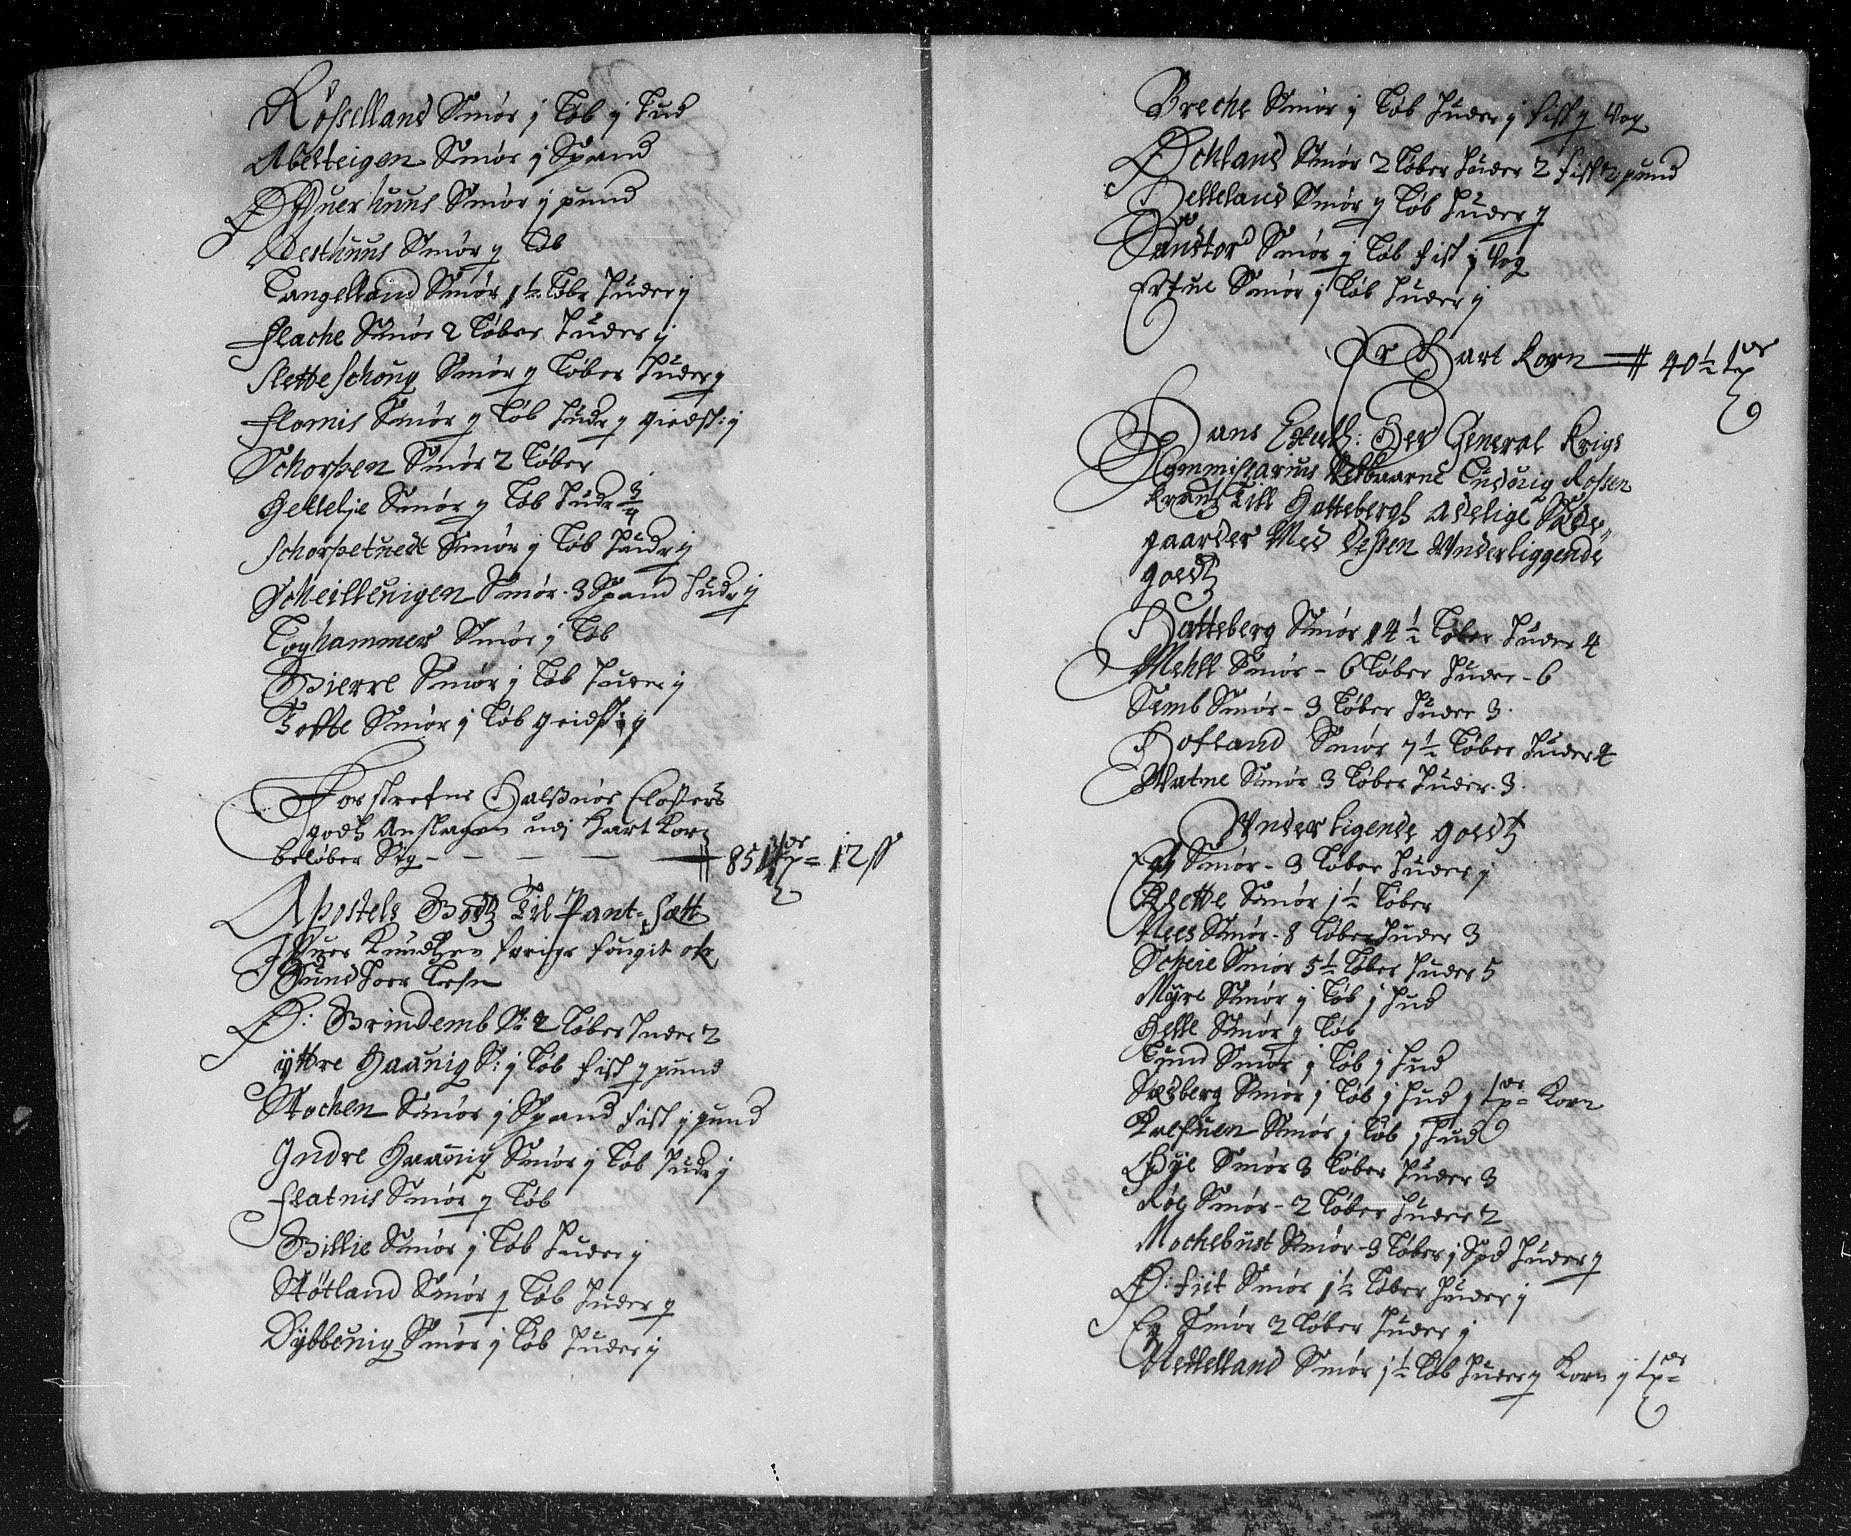 Rösselland Smör j Løb j Hud
Abelteigen Smör j Spand
Øffuerhuus Smör j pund
Vesthuus Smör ɟ Løb
Tangelland Smör 1½ Løbe Huder j
Flache Smör 2 Løber Huder j
Sletteschoug Smör ɟ Løber Huder ɟ
Flomis Smör ɟ Løb Hudr ɟ giedsk: j
Schorpen Smör 2 Løber
Hettelje Smör ɟ Løb Hudr ¾
Schorpetuedt Smör j Løb Hudr ɟ
Scheilleuigen Smör 3 Spand Hudr ɟ
Toghammer Smör j Løb
Bierre Smör j Løb Huder j
Toffte Smör j Løb geidsk: j
Forskrefne Halssnör Closters
godtz Anslagen udj Hart Korn
beløber Sig - - - - 851 tdr = 12 ss
Apostels Godtz Til Pant-sætt
Iffuer Knudtzen forige fougit ofr
Sundhoer Lehn
Ø: Grindemb S: 2 Løber Huder 2
Yttre Haauig S: j Løb fisk ɟ pund
Stochen Smör j Spand fisk j pund
Indre Haauig Smör j Løb Hudr j
Flatnis Smör ɟ Løb
Gillie Smör j Løb Huder j
Støtland Smör ɟ Løb Huder ɟ
Dybbeuig Smör j Løb Huder j
Breche Smör j Løb Huder j fisk ɟ Vog
Øchland Smör 2 Løber Huder 2 fisk 2 pund
Helleland Smör ɟ Løb Huder ɟ
Sandtor Smör j Løb fisk j Vog
Erfue Smör j Løb Huder j
Er Hart Korn 40½ tdr
Hans Excell: Her General Krigs
Commissarius Velbaarne Ludvig Rossen
krantz Till Hattebergh Adelige Sæde-
gaarder Med dessen Underliggende
goedtz
Hatteberg Smör 14½ Løber Huder 4
Mehll Smör - 6 Løber Huder - 6
Semb Smör - 3 Løber Huder 3
Hofland Smör 7½ Løber Huder 4
Watne Smör 3 Løber Huder 3
Underligende goedtz
Eg Smör - 3 Løber Huder j
Slette Smör 1½ Løber
Nees Smör - 8 Løber Huder 3
Scheie Smör 5½ Løber Huder 5
Myre Smör j Løb j Hud
Helle Smör ɟ Løb
Lund Smör j Løb j Hud
Sæberg Smör j Løb j Hud j tdr = Korn
Kalfuen Smör j Løb j Hud
Øye Smör 3 Løber Huder 3
Røe Smör - 2 Løber Huder 2
Mochebust Smör 3 Løber j Spd Huder ɟ
Ø: fiit Smör 1½ Løber Huder j
Eg Smör 2 Løber Huder j
Mettelland Smör j½ Løb Huder ɟ Korn j tdr =